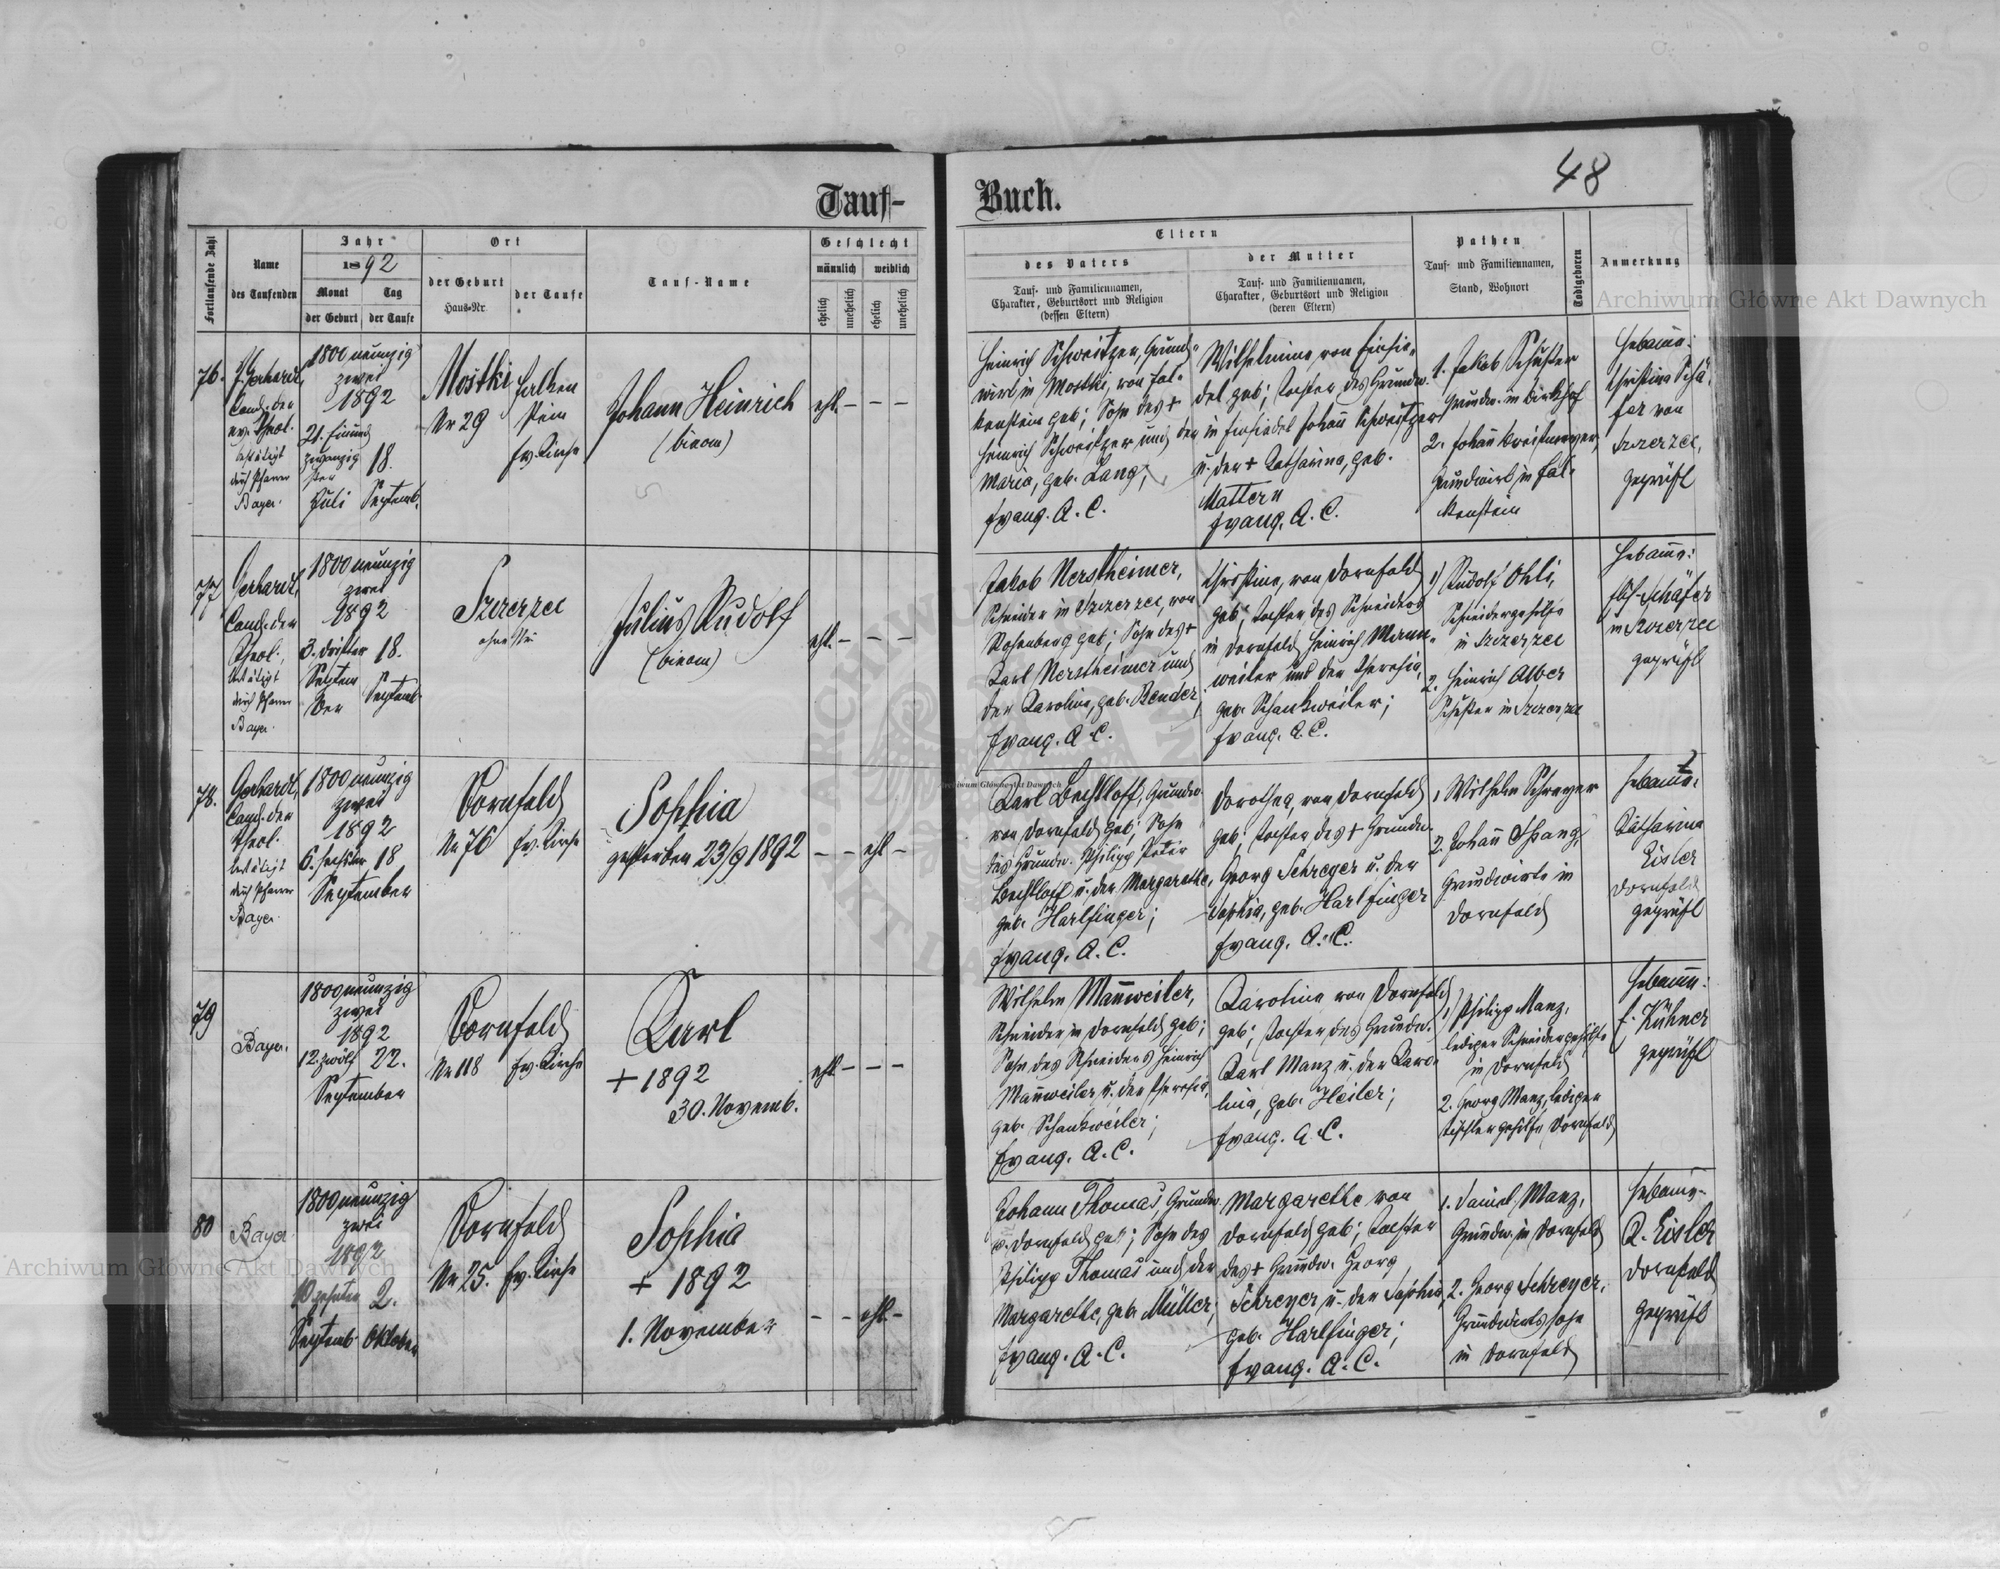 48
Tauf-
Buch.
Fortlaufende Zahl
Name
des Taufenden
Jahr
1892
Monat
Tag
der Geburt
der Taufe
Ort
der Geburt
Haus-Nr.
der Taufe
Tauf-Name
Geschlecht
männlich
weiblich
ehelich
unehelich
ehelich
unehelich
Eltern
des Vaters
Tauf- und Familiennamen,
Charakter, Geburtsort und Religion
(dessen Eltern)
der Mutter
Tauf- und Familiennamen,
Charakter, Geburtsort und Religion
(deren Eltern)
Pathen
Tauf- und Familiennamen,
Stand, Wohnort
Todtgeboren
Anmerkung
76.
Gerhardt,
Cand. der
ev. Theol.
bestätigt
durch Pfarrer
Bayer.
1800 neunzig
zwei
1892
21. einund
zwanzig
ster
Juli
18.
Septemb.
Mostki
Nr 29
Falken
stein
ev. Kirche
Johann Heinrich
(binom)
ehl. - - -
Heinrich Schweitzer, Grund-
wirt in Mostki, von Fal-
kenstein geb; Sohn des +
Heinrich Schweitzer und der
Maria, geb. Lang;
Evang. A. C.
Wilhelmine, von Einsie-
del geb; Tochter des Grundw.
in Einsiedel Johann Schweitzer
u. der + Katharina, geb.
Mattern
Evang. A. C.
1. Jakob Schuster
Grundw. in
2. Johann
Grundwirt in Fal-
kenstein
Hebamme:
Christine Schä-
fer von
Szczerzec,
geprüft
77
Gerhardt,
Cand. der
Theol.,
bestätigt
durch Pfarrer
Bayer.
1800 neunzig
zwei
1892
3. dritter
Septem
ber
18.
Septemb.
Szczerzec
ohne Nr
Julius Rudolf
(binom)
ehl. - - -
Jakob Nerstheimer,
Schneider in Szczerzec, von
Rosenberg geb; Sohn des +
Karl Nerstheimer und
der Karoline, geb. Bender;
Evang. A. C.
Christine, von Dornfeld
geb; Tochter des Schneiders
in Dornfeld Heinrich Mann-
weiler und der Theresia,
geb. Schankweiler;
Evang. A. C.
1) Rudolf Ohli,
Schneidergehilfe
in Szczerzec
2. Heinrich Alber
Schuster in Szczerzec
Hebamme:
Chr. Schäfer
in Szczerzec
geprüft
78.
Gerhardt,
Cand. der
Theol.
bestätigt
durch Pfarrer
Bayer.
1800 neunzig
zwei
1892
6. sechster 18
September
Dornfeld
Nr 76 ev. Kirche
Sophia
gestorben 23/9 1892
- - ehl -
Karl Bechtloff, Grundw.
von Dornfeld geb; Sohn
des Grundw. Philipp Peter
Bechtloff u. der Margarethe,
geb. Harlfinger;
Evang. A. C.
Dorothea, von Dornfeld
geb; Tochter des + Grundw.
Georg Schreyer u. der
Sophia, geb. Harlfinger
Evang. A. C.
1. Wilhelm Schreyer
2. Johann
Grundwirte in
Dornfeld
Hebamme.
Katharina
Eisler
Dornfeld
geprüft
79
Bayer.
1800 neunzig
zwei
1892
12. zwölf 22.
September
Dornfeld
Nr 118 ev. Kirche
Karl
+ 1892
30. Novemb.
ehl. - - -
Wilhelm Mannweiler,
Schneider in Dornfeld geb;
Sohn des Schneiders Heinrich
Mannweiler u. der Theresia,
geb. Schankweiler;
Evang. A. C.
Karoline von Dornfeld
geb; Tochter des Grundw.
Karl Manz u. der Karo-
lina, geb. Heiler;
Evang. A. C.
1) Philipp Manz,
lediger Schneidergehilfe
in Dornfeld
2. Georg Manz, lediger
Tischlergehilfe Dornfeld
Hebamme:
E. Kühner
geprüft
80
Bayer
1800 neunzig
zwei
1892
10 zehnten 2.
Septemb. Oktober
Dornfeld
Nr 25. ev. Kirche
Sophia
+ 1892
1. November
- - ehl. -
Johann Thomas, Grundw.
v. Dornfeld geb; Sohn des
Philipp Thomas und der
Margarethe, geb. Müller;
Evang. A. C.
Margarethe von
Dornfeld geb; Tochter
des + Grundw. Georg
Schreyer u. der Sophia,
geb. Harlfinger;
Evang. A. C.
1. Daniel Manz,
Grundw. in Dornfeld
2. Georg Schreyer,
Grundwirtssohn
in Dornfeld
Hebamme.
K. Eisler
Dornfeld
geprüft
Archiwum Główne Akt Dawnych
Archiwum Główne Akt Dawnych
Archiwum Główne Akt Dawnych